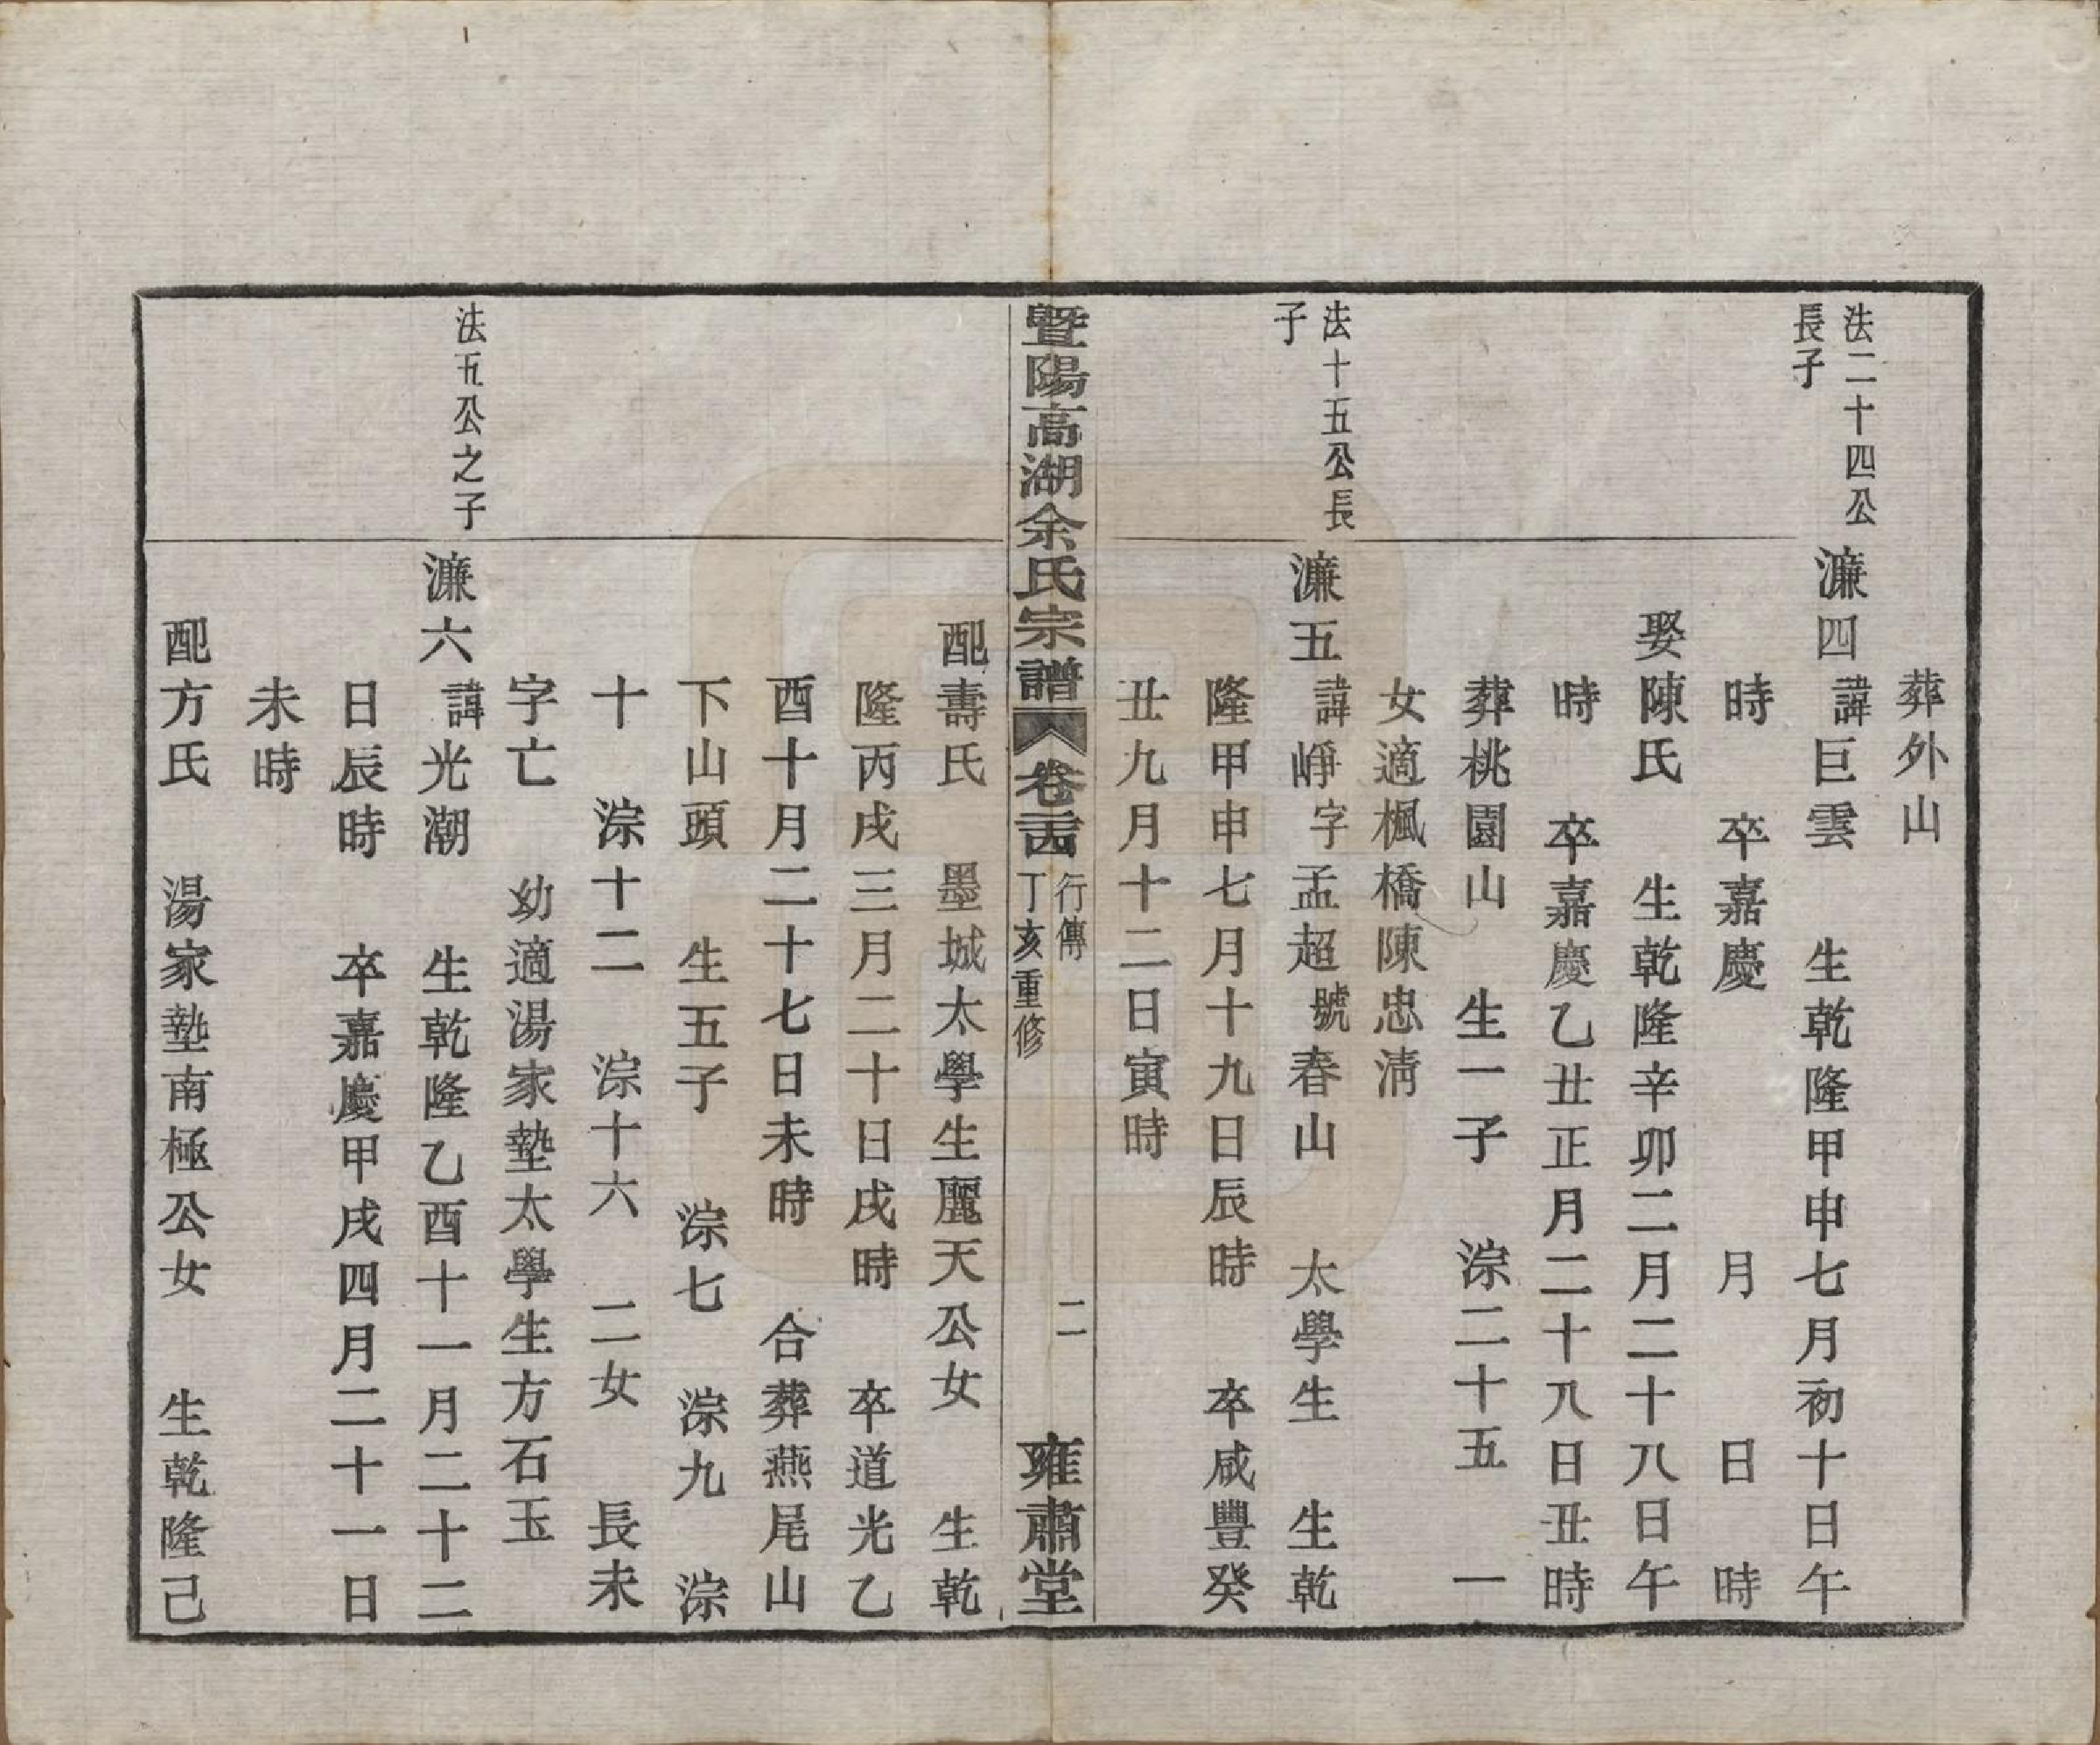 葬外山
法二十四公
長子
濂四諱巨雲　生乾隆甲申七月初十日午
時　卒嘉慶　　　　月　　日　時
娶陳氏　生乾隆辛卯二月二十八日午
時　卒嘉慶乙丑正月二十八日丑時
葬桃園山　生一子　淙二十五　一
女適楓橋陳忠淸
法十五公長
子
濂五諱崢字孟超號春山　太學生　生乾
隆甲申七月十九日辰時　卒咸豐癸
丑九月十二日寅時
暨陽高湖余氏宗譜　卷二十四　行傳　丁亥重修　二　雍肅堂
配壽氏　墨城太學生麗天公女　生乾
隆丙戌三月二十日戌時　卒道光乙
酉十月二十七日未時　合葬燕尾山
下山頭　生五子　淙七　淙九　淙
十　淙十二　淙十六　二女　長未
字亡　幼適湯家墊太學生方石玉
法五公之子
濂六諱光潮　生乾隆乙酉十一月二十二
日辰時　卒嘉慶甲戌四月二十一日
未時
配方氏　湯家墊南極公女　生乾隆己